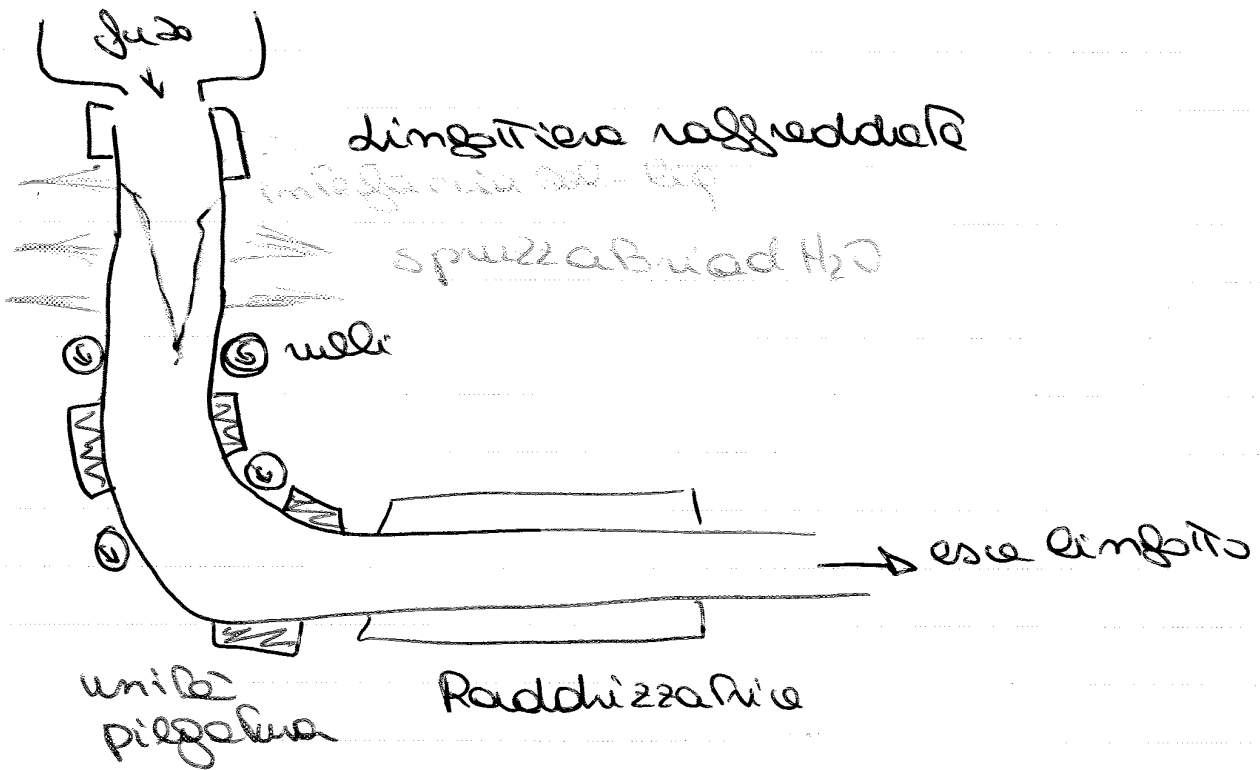 fuso
Lingottiera raffreddata
interfaccia sol-liq
spruzzatori ad H₂O
rulli
esce lingotto
unità
piegatura
Raddrizzatrice